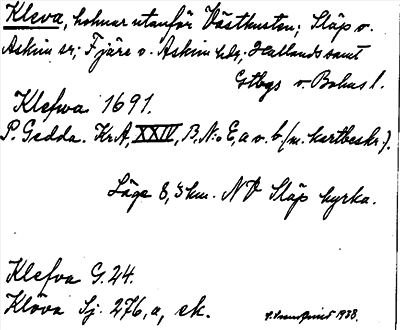 Kleva, holmar utanför Västkusten; Släp o.
Askim sr; Fjäre o. Askim hdr, Hallands samt
Gtbgs o. Bohus l.
Klefwa 1691.
P. Gedda. Kr.A, XXIV, B, N:o E, a o. b. (m. kartbeskr.).
Läge 8,5 km. NV Släp kyrka.
Klefva G. 24.
Klöva Sj. 276, a, ek.
1938.